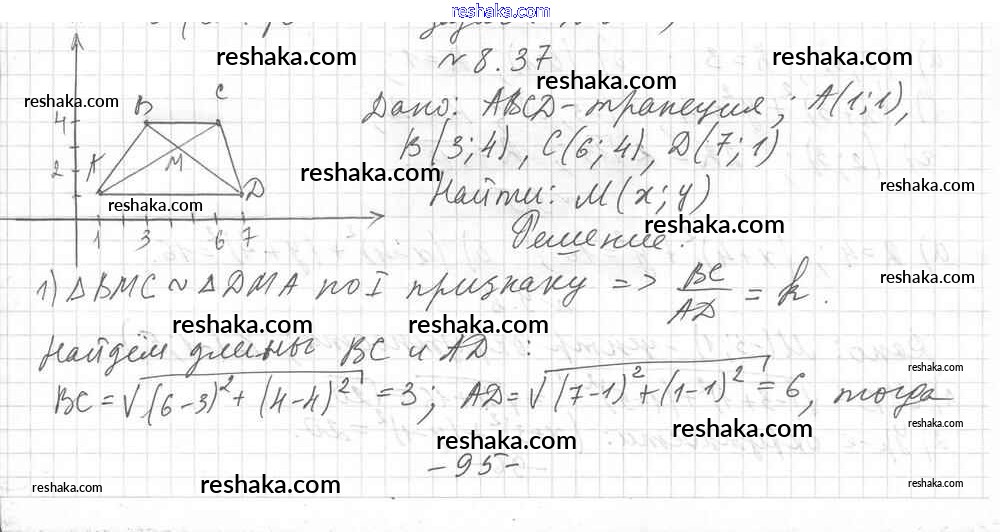 reshaka.com
№ 8.37
reshaka.com
reshaka.com
Дано: ABCD - трапеция; A(1;1),
B(3;4), C(6;4), D(7;1)
Найти: M(x;y)
Решение:
B C
4
A M
2
D
1 3 6 7
reshaka.com
reshaka.com
reshaka.com
reshaka.com
reshaka.com
1) △BMC ~ △DMA по I признаку => BC/AD = k.
reshaka.com
reshaka.com
reshaka.com
Найдём длины BC и AD:
reshaka.com
BC = √(6-3)² + (4-4)² = 3; AD = √(7-1)² + (1-1)² = 6, тогда
reshaka.com
reshaka.com
reshaka.com
-95-
reshaka.com
reshaka.com
reshaka.com